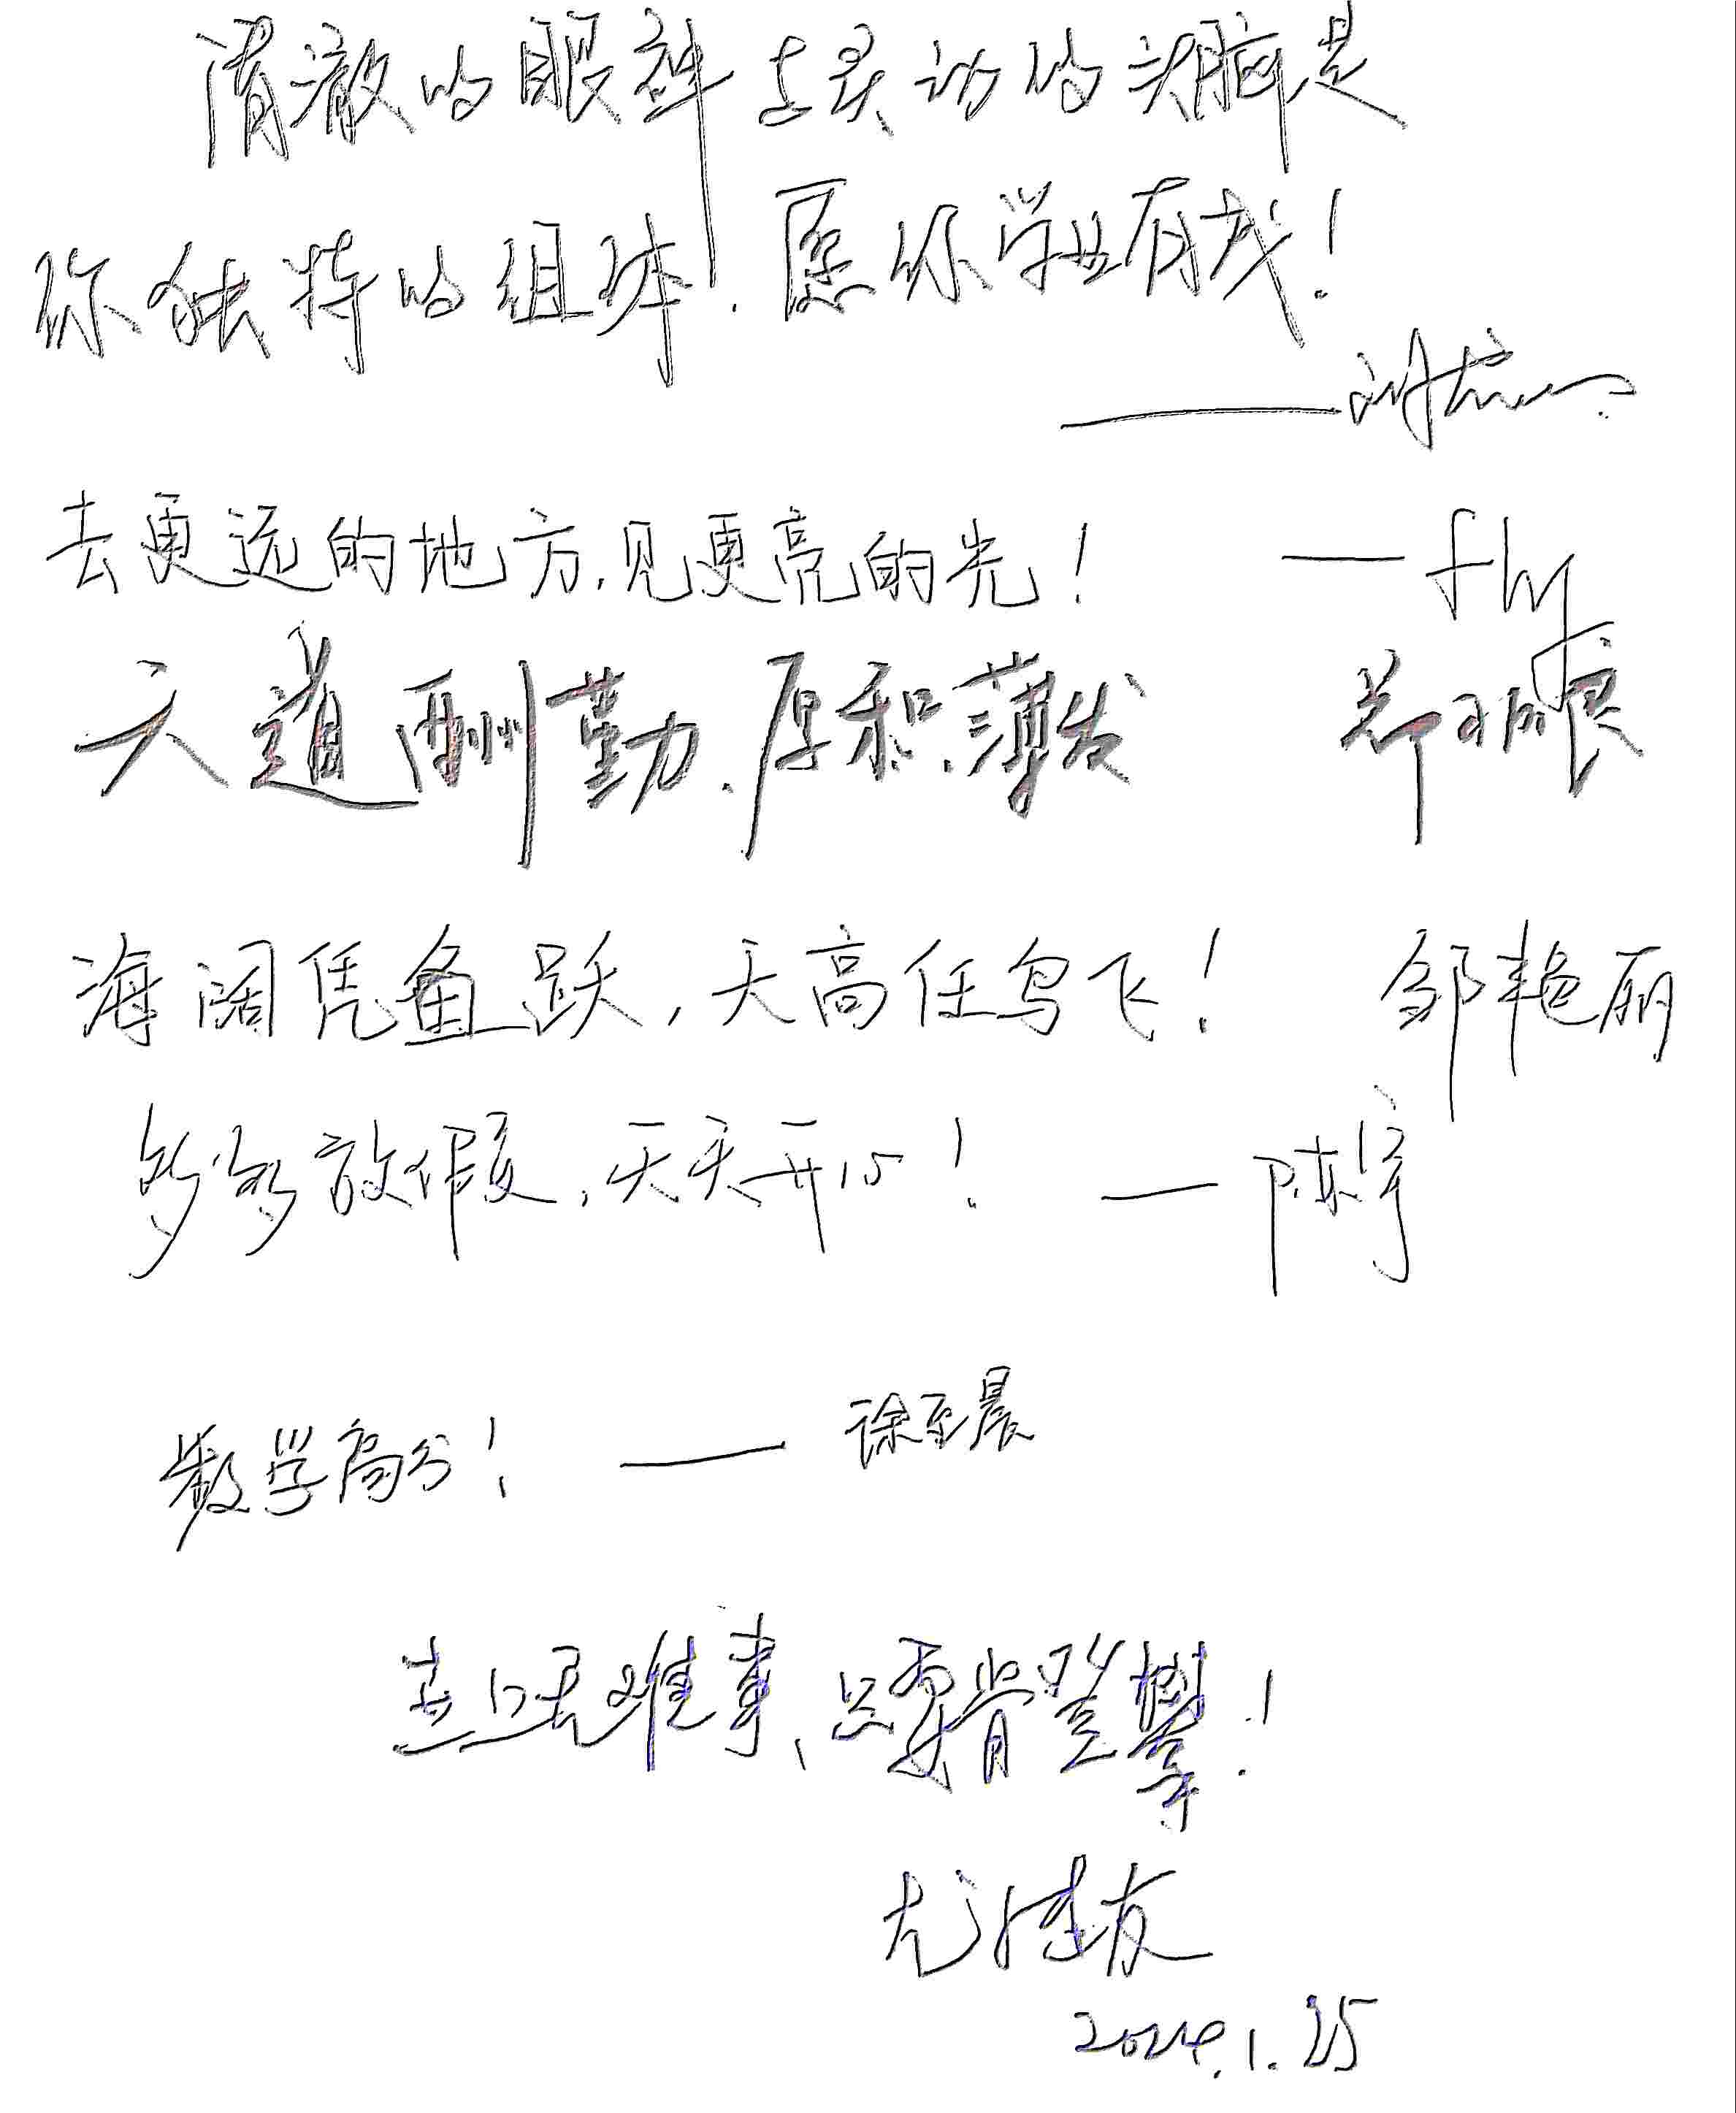 清澈的眼神与灵动的头脑是
你独特的组体.愿你学业有成!
——刘
去更远的地方,见更亮的光! —fly
天道酬勤.厚积薄发
海阔凭鱼跃,天高任鸟飞! 邹艳丽
多多放假,天天开心! —陈宇
数学高分! —徐至晨
世上无难事、只要肯登攀!
尤
2024.1.25